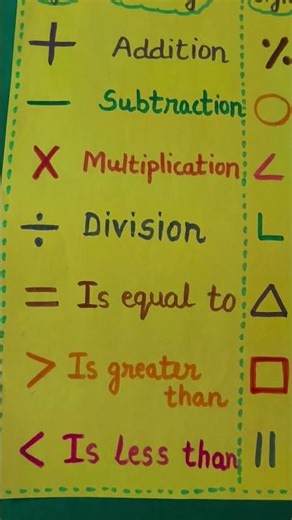 + Addition %
− Subtraction ○
× Multiplication ∠
÷ Division ∟
= Is equal to △
> Is greater than □
< Is less than ||